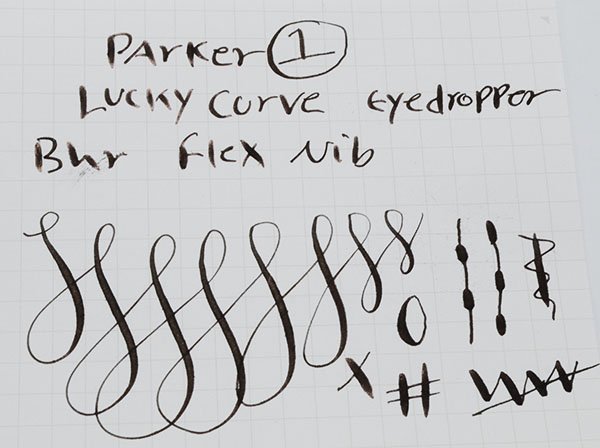 Parker 1
Lucky Curve Eyedropper
Bhr Flex Nib
X #